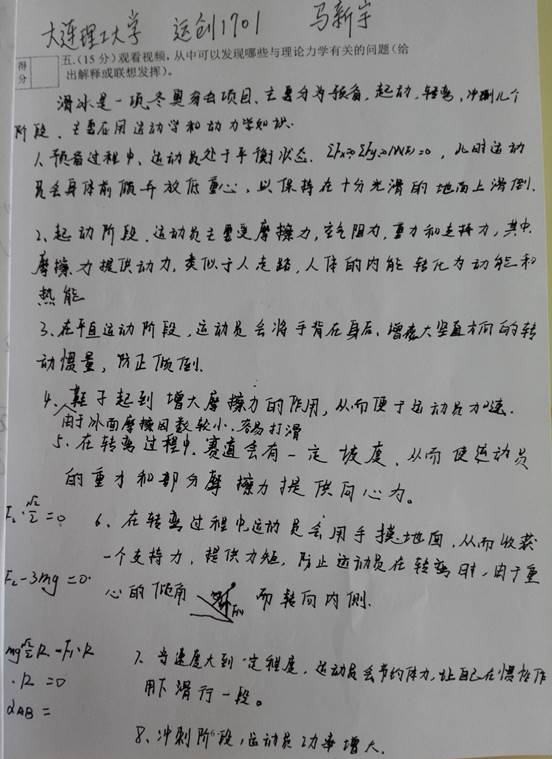 大连理工大学 运创1701 马新宇
得分
五.(15分)观看视频,从中可以发现哪些与理论力学有关的问题(给
出解释或联想发挥)。
滑冰是一项冬奥会项目、主要分为预备,起动,转弯,冲刺几个
阶段、主要应用运动学和动力学知识.
1、预备过程中,运动员处于平衡状态. ΣFx=ΣFy=M(F)=0,此时运动
员会身体前倾并放低重心,以保持在十分光滑的地面上滑倒.
2、起动阶段,运动员主要受摩擦力,空气阻力,重力和支持力,其中
摩擦力提供动力,类似于人走路,人体的内能转化为动能和
热能
3、在平直运动阶段,运动员会将手背在身后,增大竖直方向的转
动惯量,防止倾倒.
4、鞋子起到增大摩擦力的作用,从而便于运动员加速.
由于冰面摩擦因数较小,容易打滑
5、在转弯过程中,赛道会有一定坡度、从而使运动员
的重力和部分摩擦力提供向心力。
6、在转弯过程中运动员会用手摸地面,从而收获
一个支持力,提供力矩,防止运动员在转弯时,由于重
心的倾角 FN 而转向内侧.
7、当速度大到一定程度,运动员会节约体力,让自己在惯性作
用下滑行一段。
8、冲刺阶段,运动员功率增大.
F₂-3mg=0
·R=0
αAB=